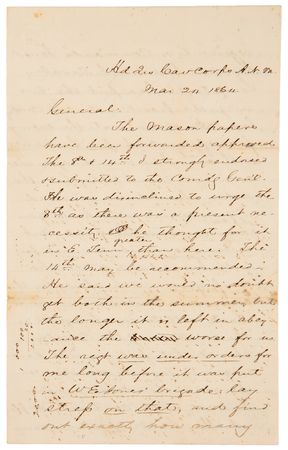 Hd Qrs Cav Corps A. N. Va
Mar 20 1864
General.
The Mason papers
have been forwarded approved
The 8th & 14th I strongly endorsed
& submitted to the Comdg Genl.
He was disinclined to urge the
8th as there was a present ne-
cessity he thought for it
greater
in E. Tenn. than here. The
14th may be recommended.
He said we would no doubt
get both in the summer but
the longer it is left in abey-
ance the worse for us
The regt was under orders for
one long before it was put
in W E Jones' brigade, lay
stress on that, and find
out exactly how many